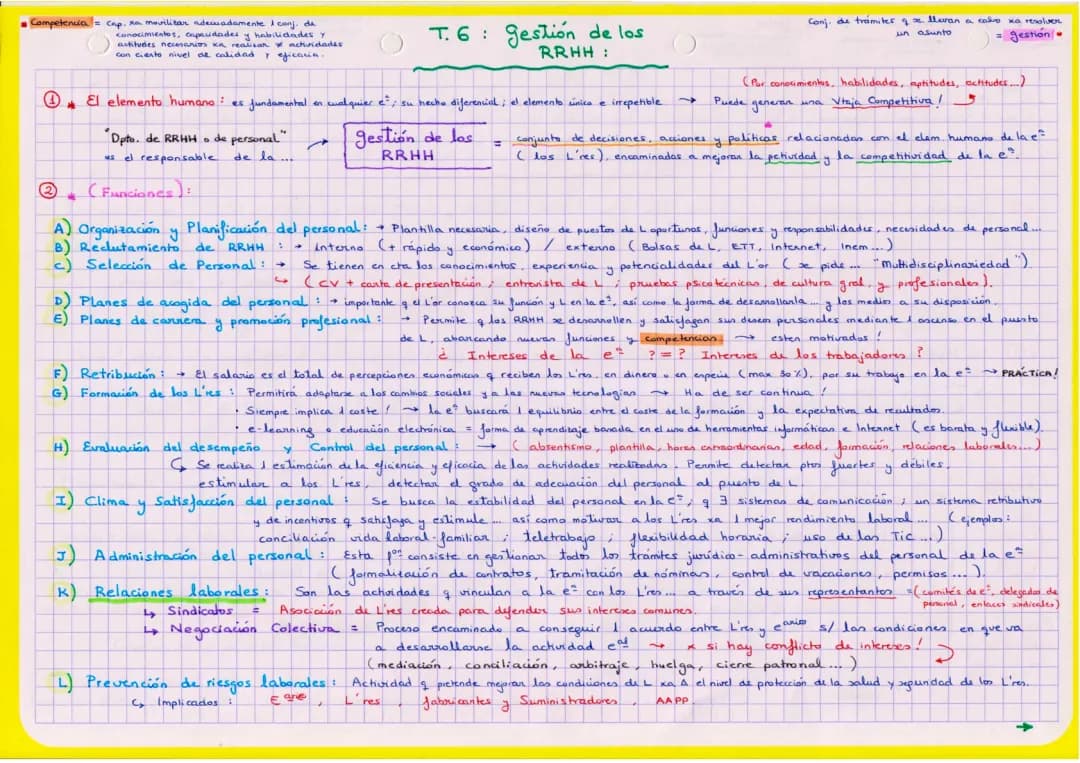 • Competencia = Cap. xa movilizar adecuadamente 1 conj. de
conocimientos, capacidades y habilidades y
actitudes necesarios xa realizar ≠ actividades
con cierto nivel de calidad y eficacia.
T.6 : gestión de los
RRHH :
Conj. de trámites q se llevan a cabo xa resolver
un asunto
= gestión •
(Por conocimientos, habilidades, aptitudes, actitudes...)
① * El elemento humano : es fundamental en cualquier eª; su hecho diferencial; el elemento único e irrepetible → Puede generar una Vtaja Competitiva !
"Dpto. de RRHH o de personal" → gestión de los = conjunto de decisiones, acciones y políticas relacionadas con el elem. humano de la eª
es el responsable de la ... RRHH ( los L'res), encaminadas a mejorar la pctividad y la competitividad de la eª.
② * (Funciones) :
A) Organización y Planificación del personal : → Plantilla necesaria, diseño de puestos de L oportunos, funciones y responsabilidades, necesidades de personal...
B) Reclutamiento de RRHH : → interno (+ rápido y económico) / externo (Bolsas de L, ETT, Internet, Inem...)
C) Selección de Personal : → Se tienen en cta los conocimientos, experiencia y potencialidades del L'or ( se pide ... "Multidisciplinariedad")
↳ (CV + carta de presentación ; entrevista de L ; pruebas psicotécnicas, de cultura gral. y profesionales).
D) Planes de acogida del personal : → importante q el L'or conozca su función y L en la eª, así como la forma de desarrollarla... y los medios a su disposición.
E) Planes de carrera y promoción profesional : → Permite q los RRHH se desarrollen y satisfagan sus deseos personales mediante 1 ascenso en el puesto
de L, abarcando nuevas funciones y competencias. → esten motivados !
¿ Intereses de la eª ? = ? Intereses de los trabajadores ?
F) Retribución : → El salario es el total de percepciones económicas q reciben los L'res, en dinero o en especie (max 30%), por su trabajo en la eª → PRÁCTICA!
G) Formación de los L'res : Permitirá adaptarse a los cambios sociales y a las nuevas tecnologías → Ha de ser continua !
• Siempre implica 1 coste ! → la eª buscará 1 equilibrio entre el coste de la formación y la expectativa de resultados.
• e-learning o educación electrónica = forma de aprendizaje basada en el uso de herramientas informáticas e Internet (es barata y flexible).
H) Evaluación del desempeño y Control del personal : → ( absentismo, plantilla, horas extraordinarias, edad, formación, relaciones laborales...)
↳ Se realiza 1 estimación de la eficiencia y eficacia de las actividades realizadas. Permite detectar ptos fuertes y débiles,
estimular a los L'res, detectar el grado de adecuación del personal al puesto de L.
I) Clima y Satisfacción del personal : Se busca la estabilidad del personal en la eª ; q ∃ sistemas de comunicación ; un sistema retributivo
y de incentivos q satisfaga y estimule ... así como motivar a los L'res xa 1 mejor rendimiento laboral ... (ejemplos :
conciliación vida laboral-familiar ; teletrabajo ; flexibilidad horaria ; uso de las TIC ...)
J) Administración del personal : Esta fºn consiste en gestionar todos los trámites jurídico-administrativos del personal de la eª
( formalización de contratos, tramitación de nóminas, control de vacaciones, permisos ... ).
K) Relaciones laborales : Son las actividades q vinculan a la eª con los L'res ... a través de sus representantos =(comités de eª, delegados de
personal, enlaces sindicales)
↳ Sindicatos = Asociación de L'res creada para defender sus intereses comunes.
↳ Negociación Colectiva = Proceso encaminado a conseguir 1 acuerdo entre L'res y eario s/ las condiciones en que va
a desarrollarse la actividad eal → * si hay conflicto de intereses !
(mediación, conciliación, arbitraje, huelga, cierre patronal ... )
L) Prevención de riesgos laborales : Actividad q pretende mejorar las condiciones de L xa Δ el nivel de protección de la salud y seguridad de los L'res.
↳ Implicados : L'res, fabricantes y Suministradores, AAPP.
→